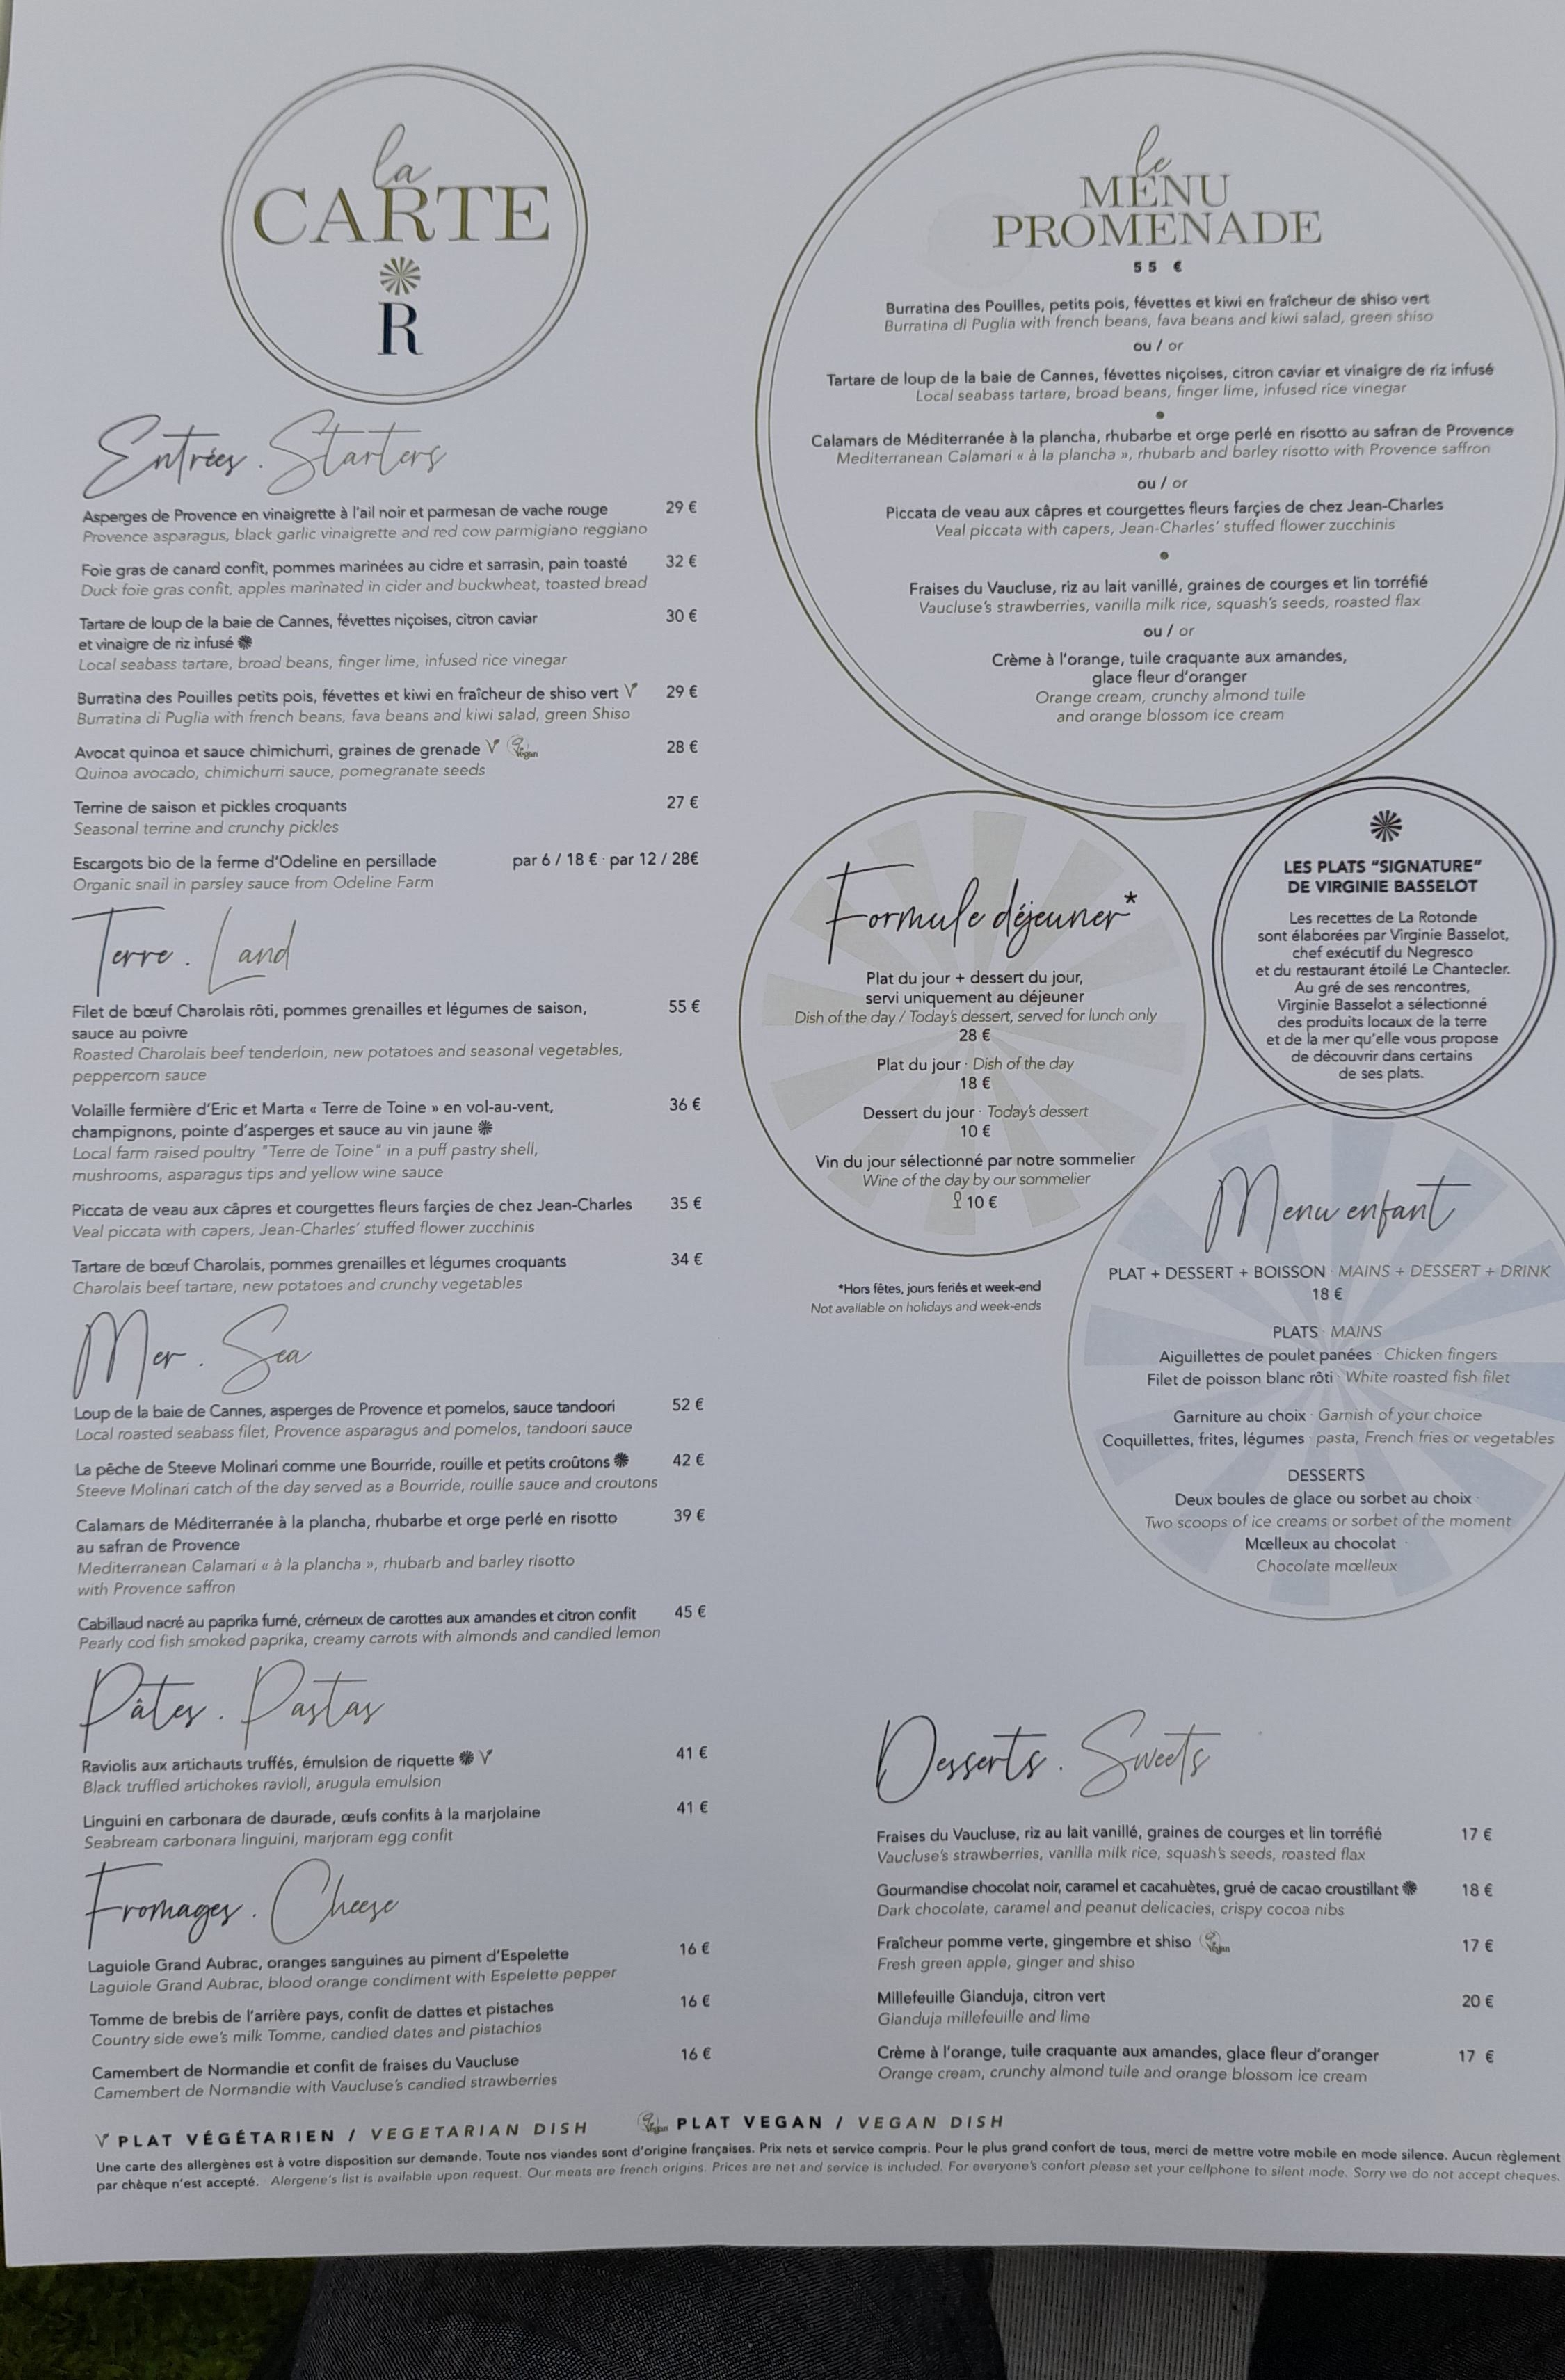 la
CARTE
R
Entrées . Starters
Asperges de Provence en vinaigrette à l'ail noir et parmesan de vache rouge 29 €
Provence asparagus, black garlic vinaigrette and red cow parmigiano reggiano
Foie gras de canard confit, pommes marinées au cidre et sarrasin, pain toasté 32 €
Duck foie gras confit, apples marinated in cider and buckwheat, toasted bread
Tartare de loup de la baie de Cannes, févettes niçoises, citron caviar 30 €
et vinaigre de riz infusé
Local seabass tartare, broad beans, finger lime, infused rice vinegar
Burratina des Pouilles petits pois, févettes et kiwi en fraîcheur de shiso vert V 29 €
Burratina di Puglia with french beans, fava beans and kiwi salad, green Shiso
Avocat quinoa et sauce chimichurri, graines de grenade V Vegan 28 €
Quinoa avocado, chimichurri sauce, pomegranate seeds
Terrine de saison et pickles croquants 27 €
Seasonal terrine and crunchy pickles
Escargots bio de la ferme d'Odeline en persillade par 6 / 18 € · par 12 / 28€
Organic snail in parsley sauce from Odeline Farm
Terre . Land
Filet de bœuf Charolais rôti, pommes grenailles et légumes de saison, 55 €
sauce au poivre
Roasted Charolais beef tenderloin, new potatoes and seasonal vegetables,
peppercorn sauce
Volaille fermière d'Eric et Marta « Terre de Toine » en vol-au-vent, 36 €
champignons, pointe d'asperges et sauce au vin jaune
Local farm raised poultry "Terre de Toine" in a puff pastry shell,
mushrooms, asparagus tips and yellow wine sauce
Piccata de veau aux câpres et courgettes fleurs farçies de chez Jean-Charles 35 €
Veal piccata with capers, Jean-Charles' stuffed flower zucchinis
Tartare de bœuf Charolais, pommes grenailles et légumes croquants 34 €
Charolais beef tartare, new potatoes and crunchy vegetables
Mer . Sea
Loup de la baie de Cannes, asperges de Provence et pomelos, sauce tandoori 52 €
Local roasted seabass filet, Provence asparagus and pomelos, tandoori sauce
La pêche de Steeve Molinari comme une Bourride, rouille et petits croûtons 42 €
Steeve Molinari catch of the day served as a Bourride, rouille sauce and croutons
Calamars de Méditerranée à la plancha, rhubarbe et orge perlé en risotto 39 €
au safran de Provence
Mediterranean Calamari « à la plancha », rhubarb and barley risotto
with Provence saffron
Cabillaud nacré au paprika fumé, crémeux de carottes aux amandes et citron confit 45 €
Pearly cod fish smoked paprika, creamy carrots with almonds and candied lemon
Pâtes . Pastas
Raviolis aux artichauts truffés, émulsion de riquette V 41 €
Black truffled artichokes ravioli, arugula emulsion
Linguini en carbonara de daurade, œufs confits à la marjolaine 41 €
Seabream carbonara linguini, marjoram egg confit
Fromages . Cheese
Laguiole Grand Aubrac, oranges sanguines au piment d'Espelette 16 €
Laguiole Grand Aubrac, blood orange condiment with Espelette pepper
Tomme de brebis de l'arrière pays, confit de dattes et pistaches 16 €
Country side ewe's milk Tomme, candied dates and pistachios
Camembert de Normandie et confit de fraises du Vaucluse 16 €
Camembert de Normandie with Vaucluse's candied strawberries
le
MENU
PROMENADE
55 €
Burratina des Pouilles, petits pois, févettes et kiwi en fraîcheur de shiso vert
Burratina di Puglia with french beans, fava beans and kiwi salad, green shiso
ou / or
Tartare de loup de la baie de Cannes, févettes niçoises, citron caviar et vinaigre de riz infusé
Local seabass tartare, broad beans, finger lime, infused rice vinegar
•
Calamars de Méditerranée à la plancha, rhubarbe et orge perlé en risotto au safran de Provence
Mediterranean Calamari « à la plancha », rhubarb and barley risotto with Provence saffron
ou / or
Piccata de veau aux câpres et courgettes fleurs farçies de chez Jean-Charles
Veal piccata with capers, Jean-Charles' stuffed flower zucchinis
•
Fraises du Vaucluse, riz au lait vanillé, graines de courges et lin torréfié
Vaucluse's strawberries, vanilla milk rice, squash's seeds, roasted flax
ou / or
Crème à l'orange, tuile craquante aux amandes,
glace fleur d'oranger
Orange cream, crunchy almond tuile
and orange blossom ice cream
Formule déjeuner*
Plat du jour + dessert du jour,
servi uniquement au déjeuner
Dish of the day / Today's dessert, served for lunch only
28 €
Plat du jour · Dish of the day
18 €
Dessert du jour · Today's dessert
10 €
Vin du jour sélectionné par notre sommelier
Wine of the day by our sommelier
10 €
*Hors fêtes, jours feriés et week-end
Not available on holidays and week-ends
LES PLATS "SIGNATURE"
DE VIRGINIE BASSELOT
Les recettes de La Rotonde
sont élaborées par Virginie Basselot,
chef exécutif du Negresco
et du restaurant étoilé Le Chantecler.
Au gré de ses rencontres,
Virginie Basselot a sélectionné
des produits locaux de la terre
et de la mer qu'elle vous propose
de découvrir dans certains
de ses plats.
Menu enfant
PLAT + DESSERT + BOISSON · MAINS + DESSERT + DRINK
18 €
PLATS · MAINS
Aiguillettes de poulet panées · Chicken fingers
Filet de poisson blanc rôti · White roasted fish filet
Garniture au choix · Garnish of your choice
Coquillettes, frites, légumes · pasta, French fries or vegetables
DESSERTS
Deux boules de glace ou sorbet au choix ·
Two scoops of ice creams or sorbet of the moment
Mœlleux au chocolat ·
Chocolate mœlleux
Desserts . Sweets
Fraises du Vaucluse, riz au lait vanillé, graines de courges et lin torréfié 17 €
Vaucluse's strawberries, vanilla milk rice, squash's seeds, roasted flax
Gourmandise chocolat noir, caramel et cacahuètes, grué de cacao croustillant 18 €
Dark chocolate, caramel and peanut delicacies, crispy cocoa nibs
Fraîcheur pomme verte, gingembre et shiso Vegan 17 €
Fresh green apple, ginger and shiso
Millefeuille Gianduja, citron vert 20 €
Gianduja millefeuille and lime
Crème à l'orange, tuile craquante aux amandes, glace fleur d'oranger 17 €
Orange cream, crunchy almond tuile and orange blossom ice cream
V PLAT VÉGÉTARIEN / VEGETARIAN DISH Vegan PLAT VEGAN / VEGAN DISH
Une carte des allergènes est à votre disposition sur demande. Toute nos viandes sont d'origine françaises. Prix nets et service compris. Pour le plus grand confort de tous, merci de mettre votre mobile en mode silence. Aucun règlement
par chèque n'est accepté. Alergene's list is available upon request. Our meats are french origins. Prices are net and service is included. For everyone's confort please set your cellphone to silent mode. Sorry we do not accept cheques.